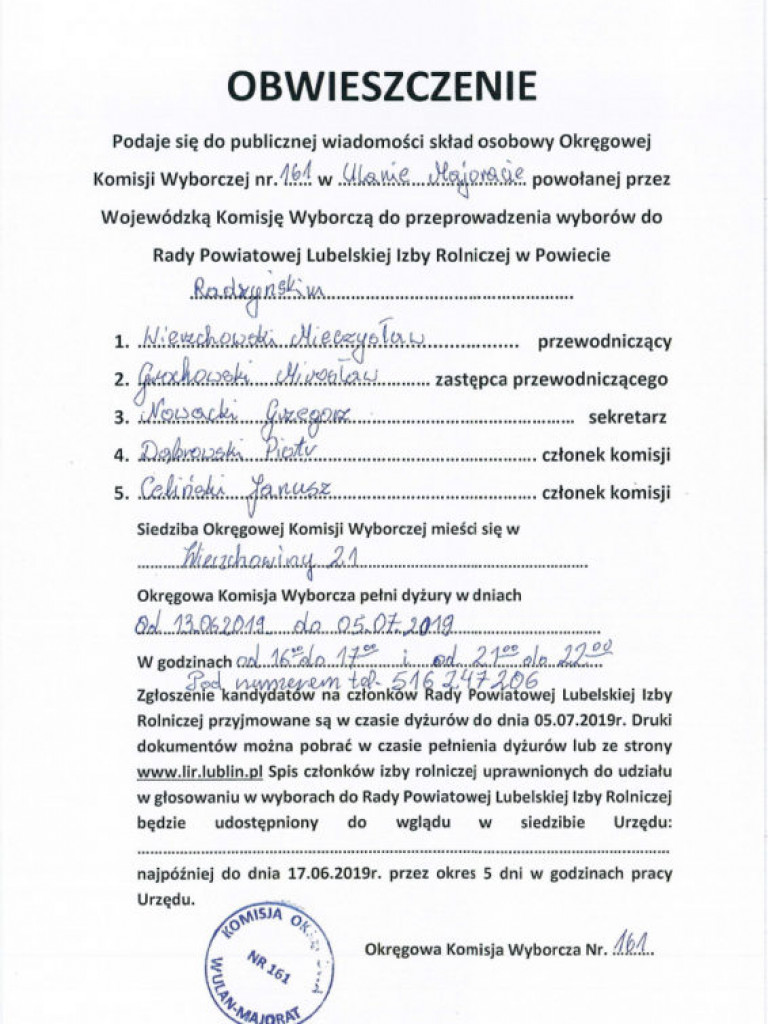 OBWIESZCZENIE
Podaje się do publicznej wiadomości skład osobowy Okręgowej
Komisji Wyborczej nr. 161 w Ulanie Majoracie powołanej przez
Wojewódzką Komisję Wyborczą do przeprowadzenia wyborów do
Rady Powiatowej Lubelskiej Izby Rolniczej w Powiecie
Radzyńskim
1. Wierzchowski Mieczysław przewodniczący
2. Grochowski Mirosław zastępca przewodniczącego
3. Nowacki Grzegorz sekretarz
4. Dąbrowski Piotr członek komisji
5. Celiński Janusz członek komisji
Siedziba Okręgowej Komisji Wyborczej mieści się w
Wierzchowiny 21
Okręgowa Komisja Wyborcza pełni dyżury w dniach
od 13.06.2019. do 05.07.2019
W godzinach od 16⁰⁰ do 17⁰⁰ i od 21⁰⁰ do 22⁰⁰
Pod numerem tel. 516 247 206
Zgłoszenie kandydatów na członków Rady Powiatowej Lubelskiej Izby
Rolniczej przyjmowane są w czasie dyżurów do dnia 05.07.2019r. Druki
dokumentów można pobrać w czasie pełnienia dyżurów lub ze strony
www.lir.lublin.pl Spis członków izby rolniczej uprawnionych do udziału
w głosowaniu w wyborach do Rady Powiatowej Lubelskiej Izby Rolniczej
będzie udostępniony do wglądu w siedzibie Urzędu:
najpóźniej do dnia 17.06.2019r. przez okres 5 dni w godzinach pracy
Urzędu.
Okręgowa Komisja Wyborcza Nr. 161
KOMISJA
NR 161
W ULAN-MAJORAT